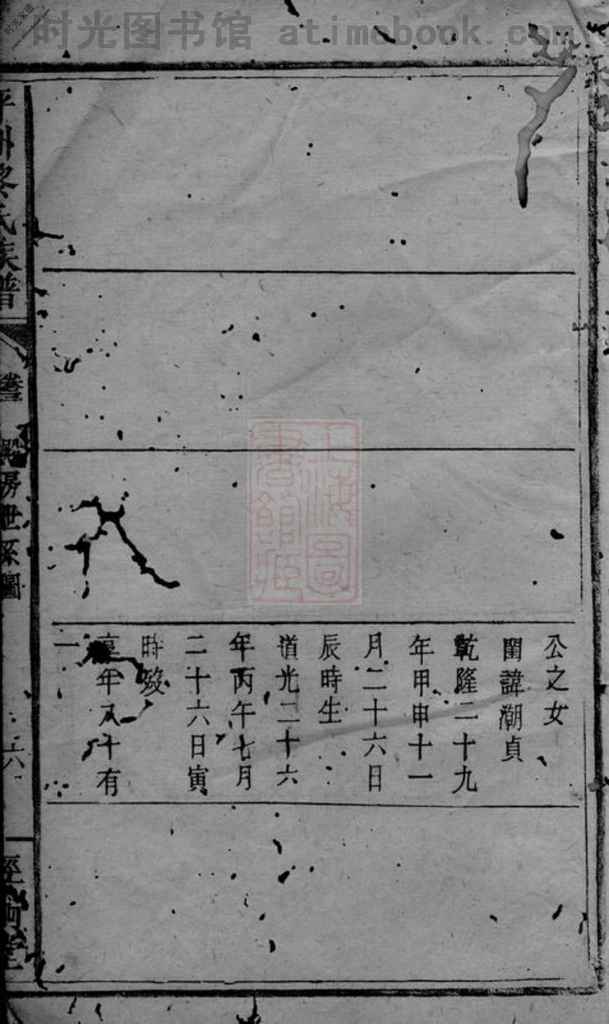 时光图书馆 atimebook.com
公之女
閨諱潮貞
乾隆二十九
年甲申十一
月二十六日
辰時生
道光二十六
年丙午七月
二十六日寅
時歿
年八十有
一
氏族譜
房世系圖
六